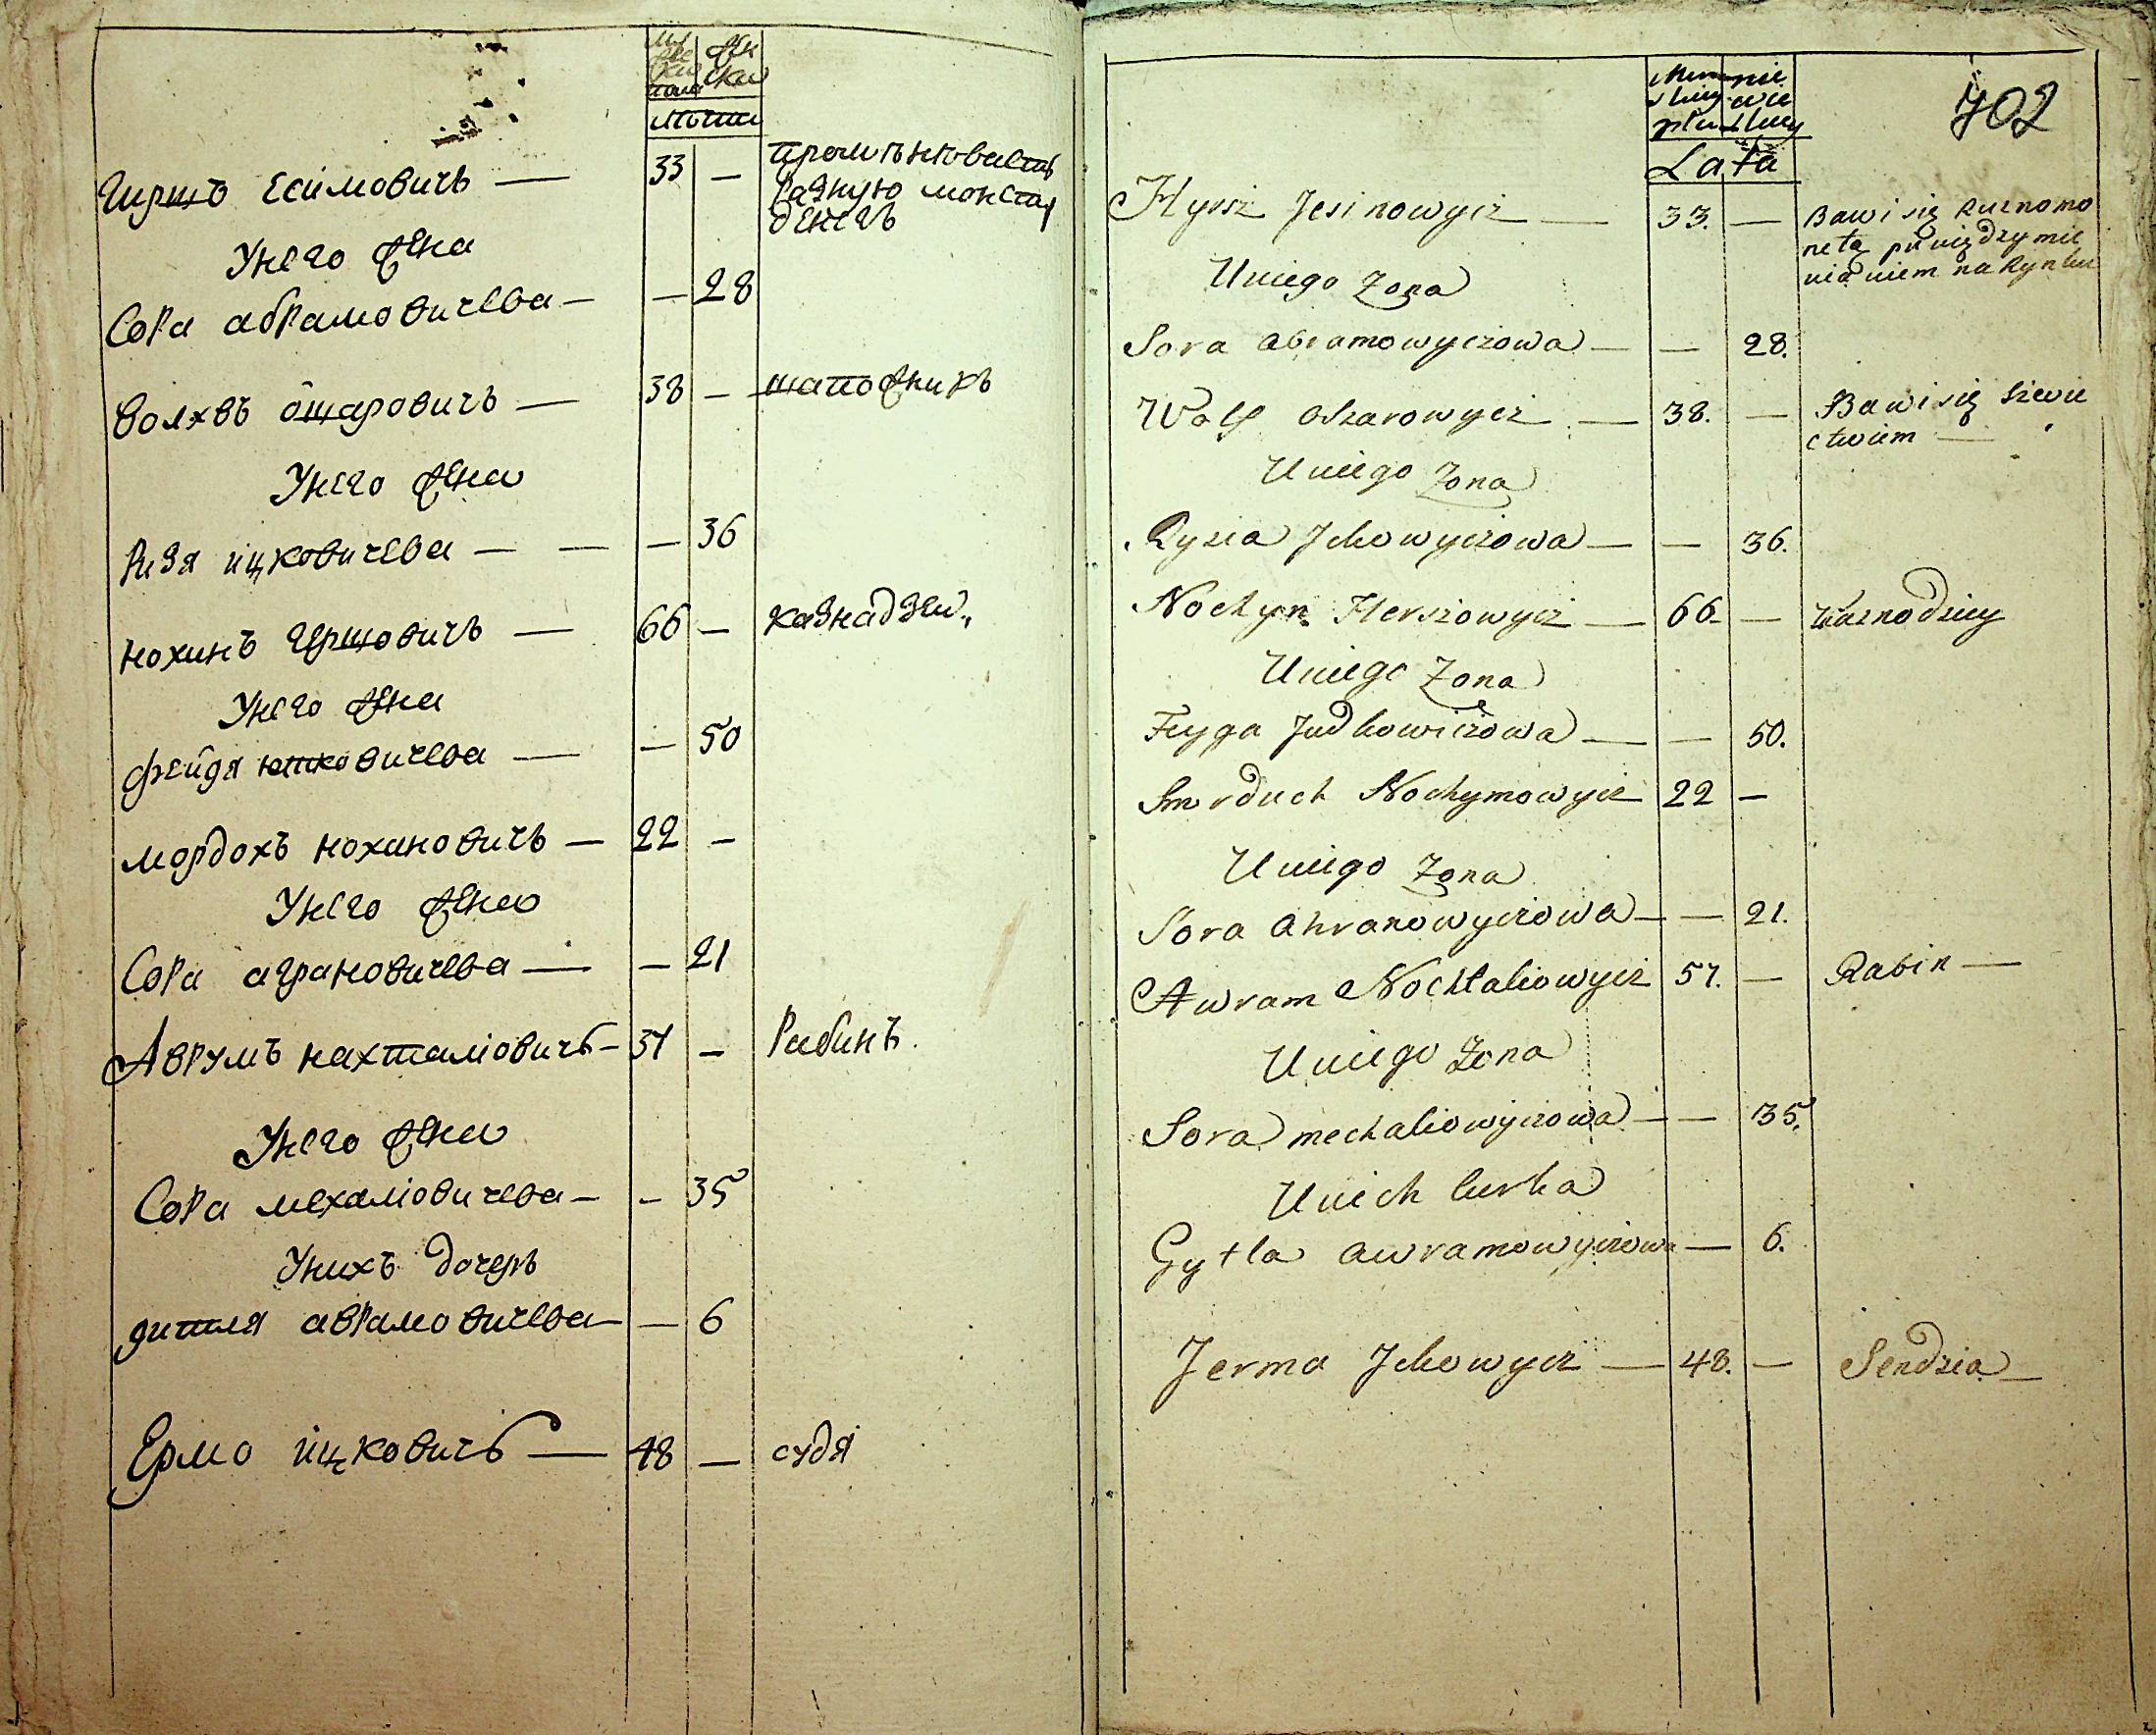 муже
ска
пола
жен
ска
лѣта
гиршъ есимовичъ — 33 —
промѣнюваетъ
разную монетая
денегъ
Унего жена
Сора абрамовичева — — 28
волхвъ ошаровичъ — 38 — шапожникъ
Унего жена
ризя ицковичева — — — 36
нохинъ гершовичъ — 66 — казнадзеи.
Унего жена
фейдя юткковичева — — 50
мордохъ нохиновичъ — 22 —
Унего жена
Сора аграновичева — — 21
Аврумъ нахталіовичъ — 37 — Рабинъ.
Унего жена
Сора мехаліовичева — — 35
Унихъ дочерь
дитля аврамовичева — — 6
Ермо ицковичъ — 48 — судя
702
Lata
Hyrsz Jesinowycz — 33. —
Bawi się ruznomo
netą piniędzy mie
nianiem na Rynku
Uniego Zona
Sora abramowyczowa — — 28.
Wolf oszarowycz — 38. —
Bawi się szewie
ctwiem —
Uniego Zona
Ryzia Jckowyczowa — — 36.
Nochyn Herszowycz — 66. — kaznodziey
Uniego Zona
Feyga Judkowiczowa — — 50.
Smrduch Nochymowycz 22 —
Uniego Zona
Sora ahranowyczowa — — 21.
Awram Nochtaliowycz 57. — Rabin —
Uniego Zona
Sora mechaliowyczowa — — 35.
Unich curka
Gytla awramowyczowa — 6.
Jerma Jckowycz — 48. — Sendzia —